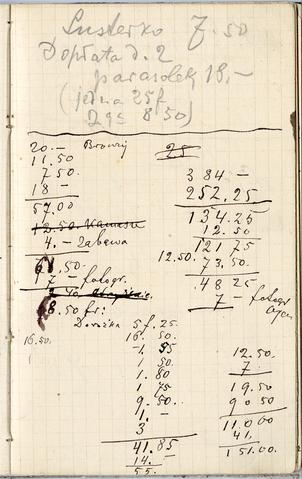 Lusterko 7.50
Dopłata d. 2
parasolek 18,-
(jedna 25 f.
2gs 8 50)
20.- Browij
11.50
7 50.
18 -
57.00
12.50.
4. - Zabawa
61.50.
7 - fotogr.
68.50 fr:
16.50.
25
384 -
252.25
134.25
12.50
121 75
12.50. 73.50.
48 25
7 - fotogr
Dorożka 5 f. 25.
16. 50.
1. 95
1 50.
1. 80
1 75
9. 50.
1. -
3
41.85
14. -
55.
12.50.
7
19.50
90 50
11.000
41.
151.00.